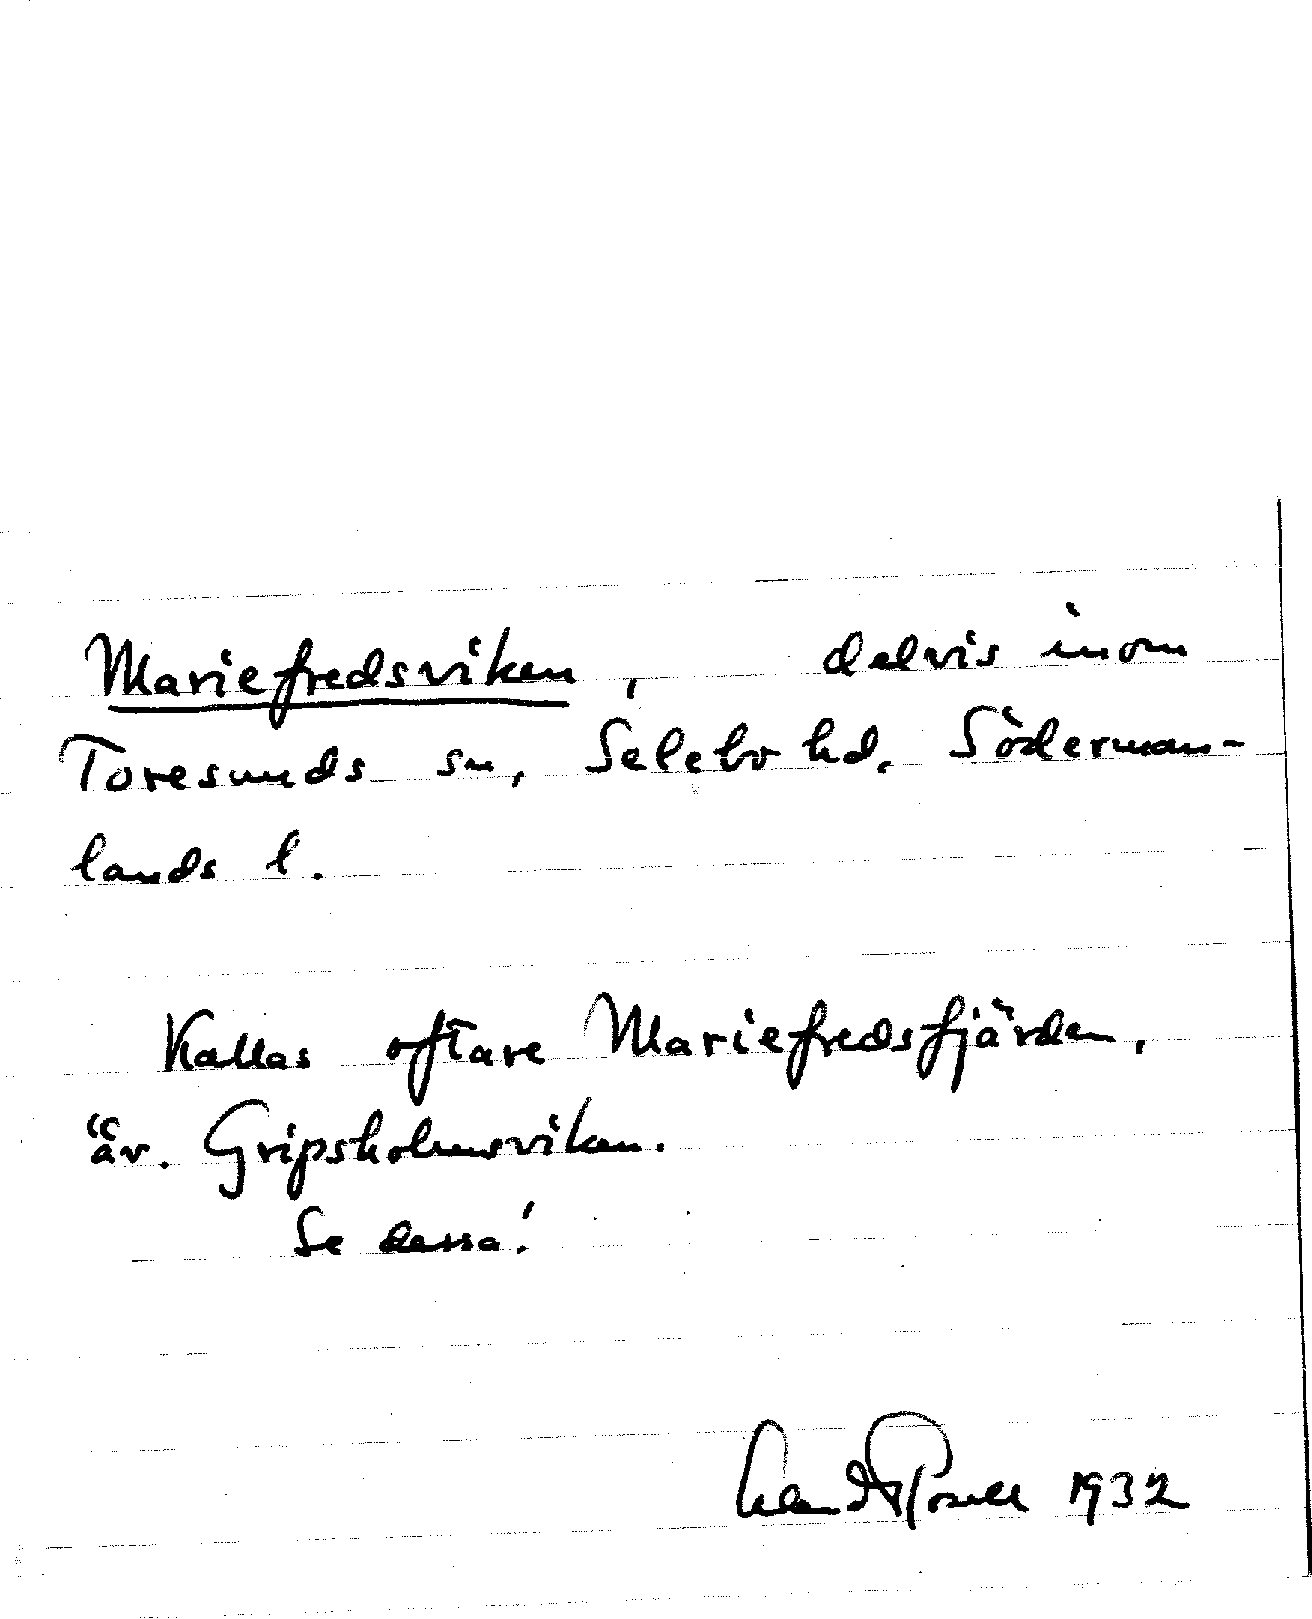 Mariefredsviken, delvis inom
Toresunds sn, Selebo hd, Söderman-
lands l.
Kallas oftare Mariefredsfjärden,
äv. Gripsholmsviken.
Se dessa!
1932